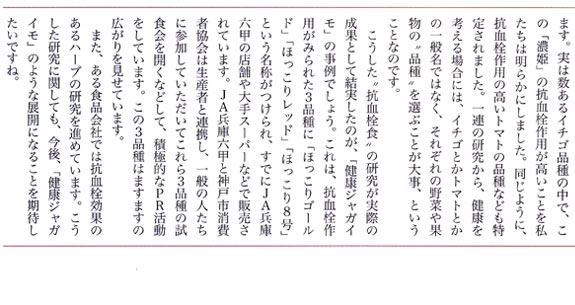 ます。実は数あるイチゴ品種の中で、こ
の「濃姫」の抗血栓作用が高いことを私
たちは明らかにしました。同じように、
抗血栓作用の高いトマトの品種なども特
定されました。一連の研究から、健康を
考える場合には、イチゴとかトマトとか
の一般名ではなく、それぞれの野菜や果
物の〝品種〟を選ぶことが大事、という
ことなのです。
こうした〝抗血栓食〟の研究が実際の
成果として結実したのが、「健康ジャガイ
モ」の事例でしょう。これは、抗血栓作
用がみられた3品種に「ほっこりゴール
ド」「ほっこりレッド」「ほっこり8号」
という名称がつけられ、すでにJA兵庫
六甲の店舗や大手スーパーなどで販売さ
れています。JA兵庫六甲と神戸市消費
者協会は生産者と連携し、一般の人たち
に参加していただいてこれら3品種の試
食会を開くなどして、積極的なPR活動
をしています。この3品種はますますの
広がりを見せています。
また、ある食品会社では抗血栓効果の
あるハーブの研究を進めています。こう
した研究に関しても、今後、「健康ジャガ
イモ」のような展開になることを期待し
たいですね。